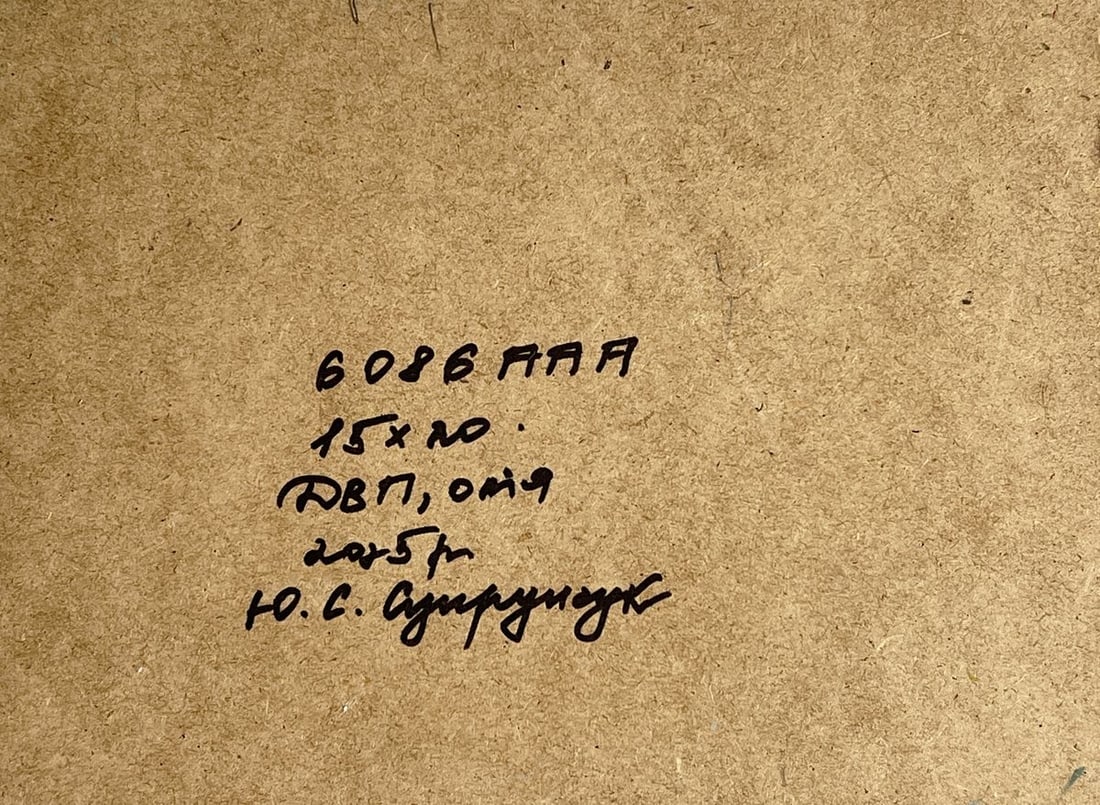 6086 AAA
15x20.
ДВП, олія
2025р
Ю.С. Супрунчук